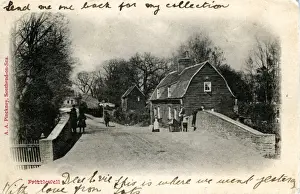 Send me one back for my collection
A. A. Pinckney, Southend-on-Sea.
Prittlewell
this is where we went yesterday
love from